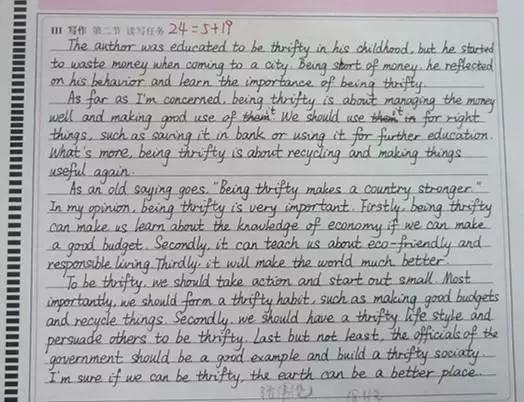 III 写作 第二节 读写任务 24=5+19
The author was educated to be thrifty in his childhood, but he started
to waste money when coming to a city. Being short of money, he reflected
on his behavior and learn the importance of being thrifty.
As far as I'm concerned, being thrifty is about managing the money
well and making good use of it. We should use it for right
things, such as saving it in bank or using it for further education.
What's more, being thrifty is about recycling and making things
useful again.
As an old saying goes. "Being thrifty makes a country stronger."
In my opinion, being thrifty is very important. Firstly, being thrifty
can make us learn about the knowledge of economy if we can make
a good budget. Secondly, it can teach us about eco-friendly and
responsible living. Thirdly, it will make the world much better.
To be thrifty, we should take action and start out small. Most
importantly, we should form a thrifty habit, such as making good budgets
and recycle things. Secondly, we should have a thrifty life style and
persuade others to be thrifty. Last but not least, the officials of the
government should be a good example and build a thrifty sociaty.
I'm sure if we can be thrifty, the earth can be a better place.